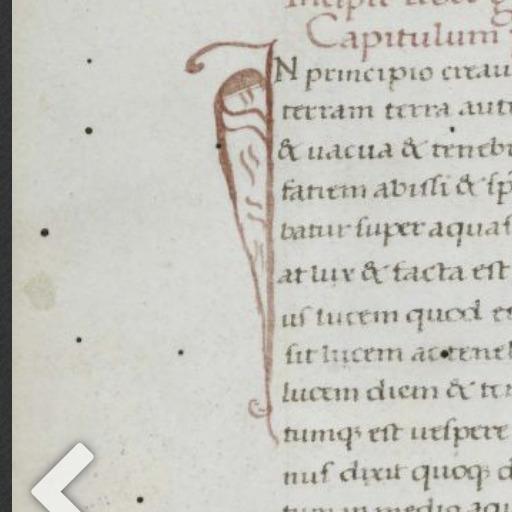 Incipit liber g
Capitulum
IN principio creau
terram terra aut
& uacua & tenebr
faciem abissi & sp
batur super aquas
at lux & facta est
us lucem quod e
sit lucem ac teneb
lucem diem & te
tumq; est uespere
nus dixit quoq; d
tum in medio aqu